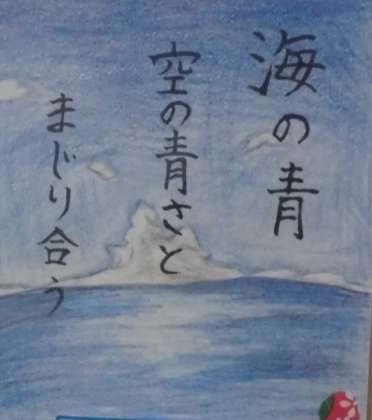 海の青
空の青さと
まじり合う